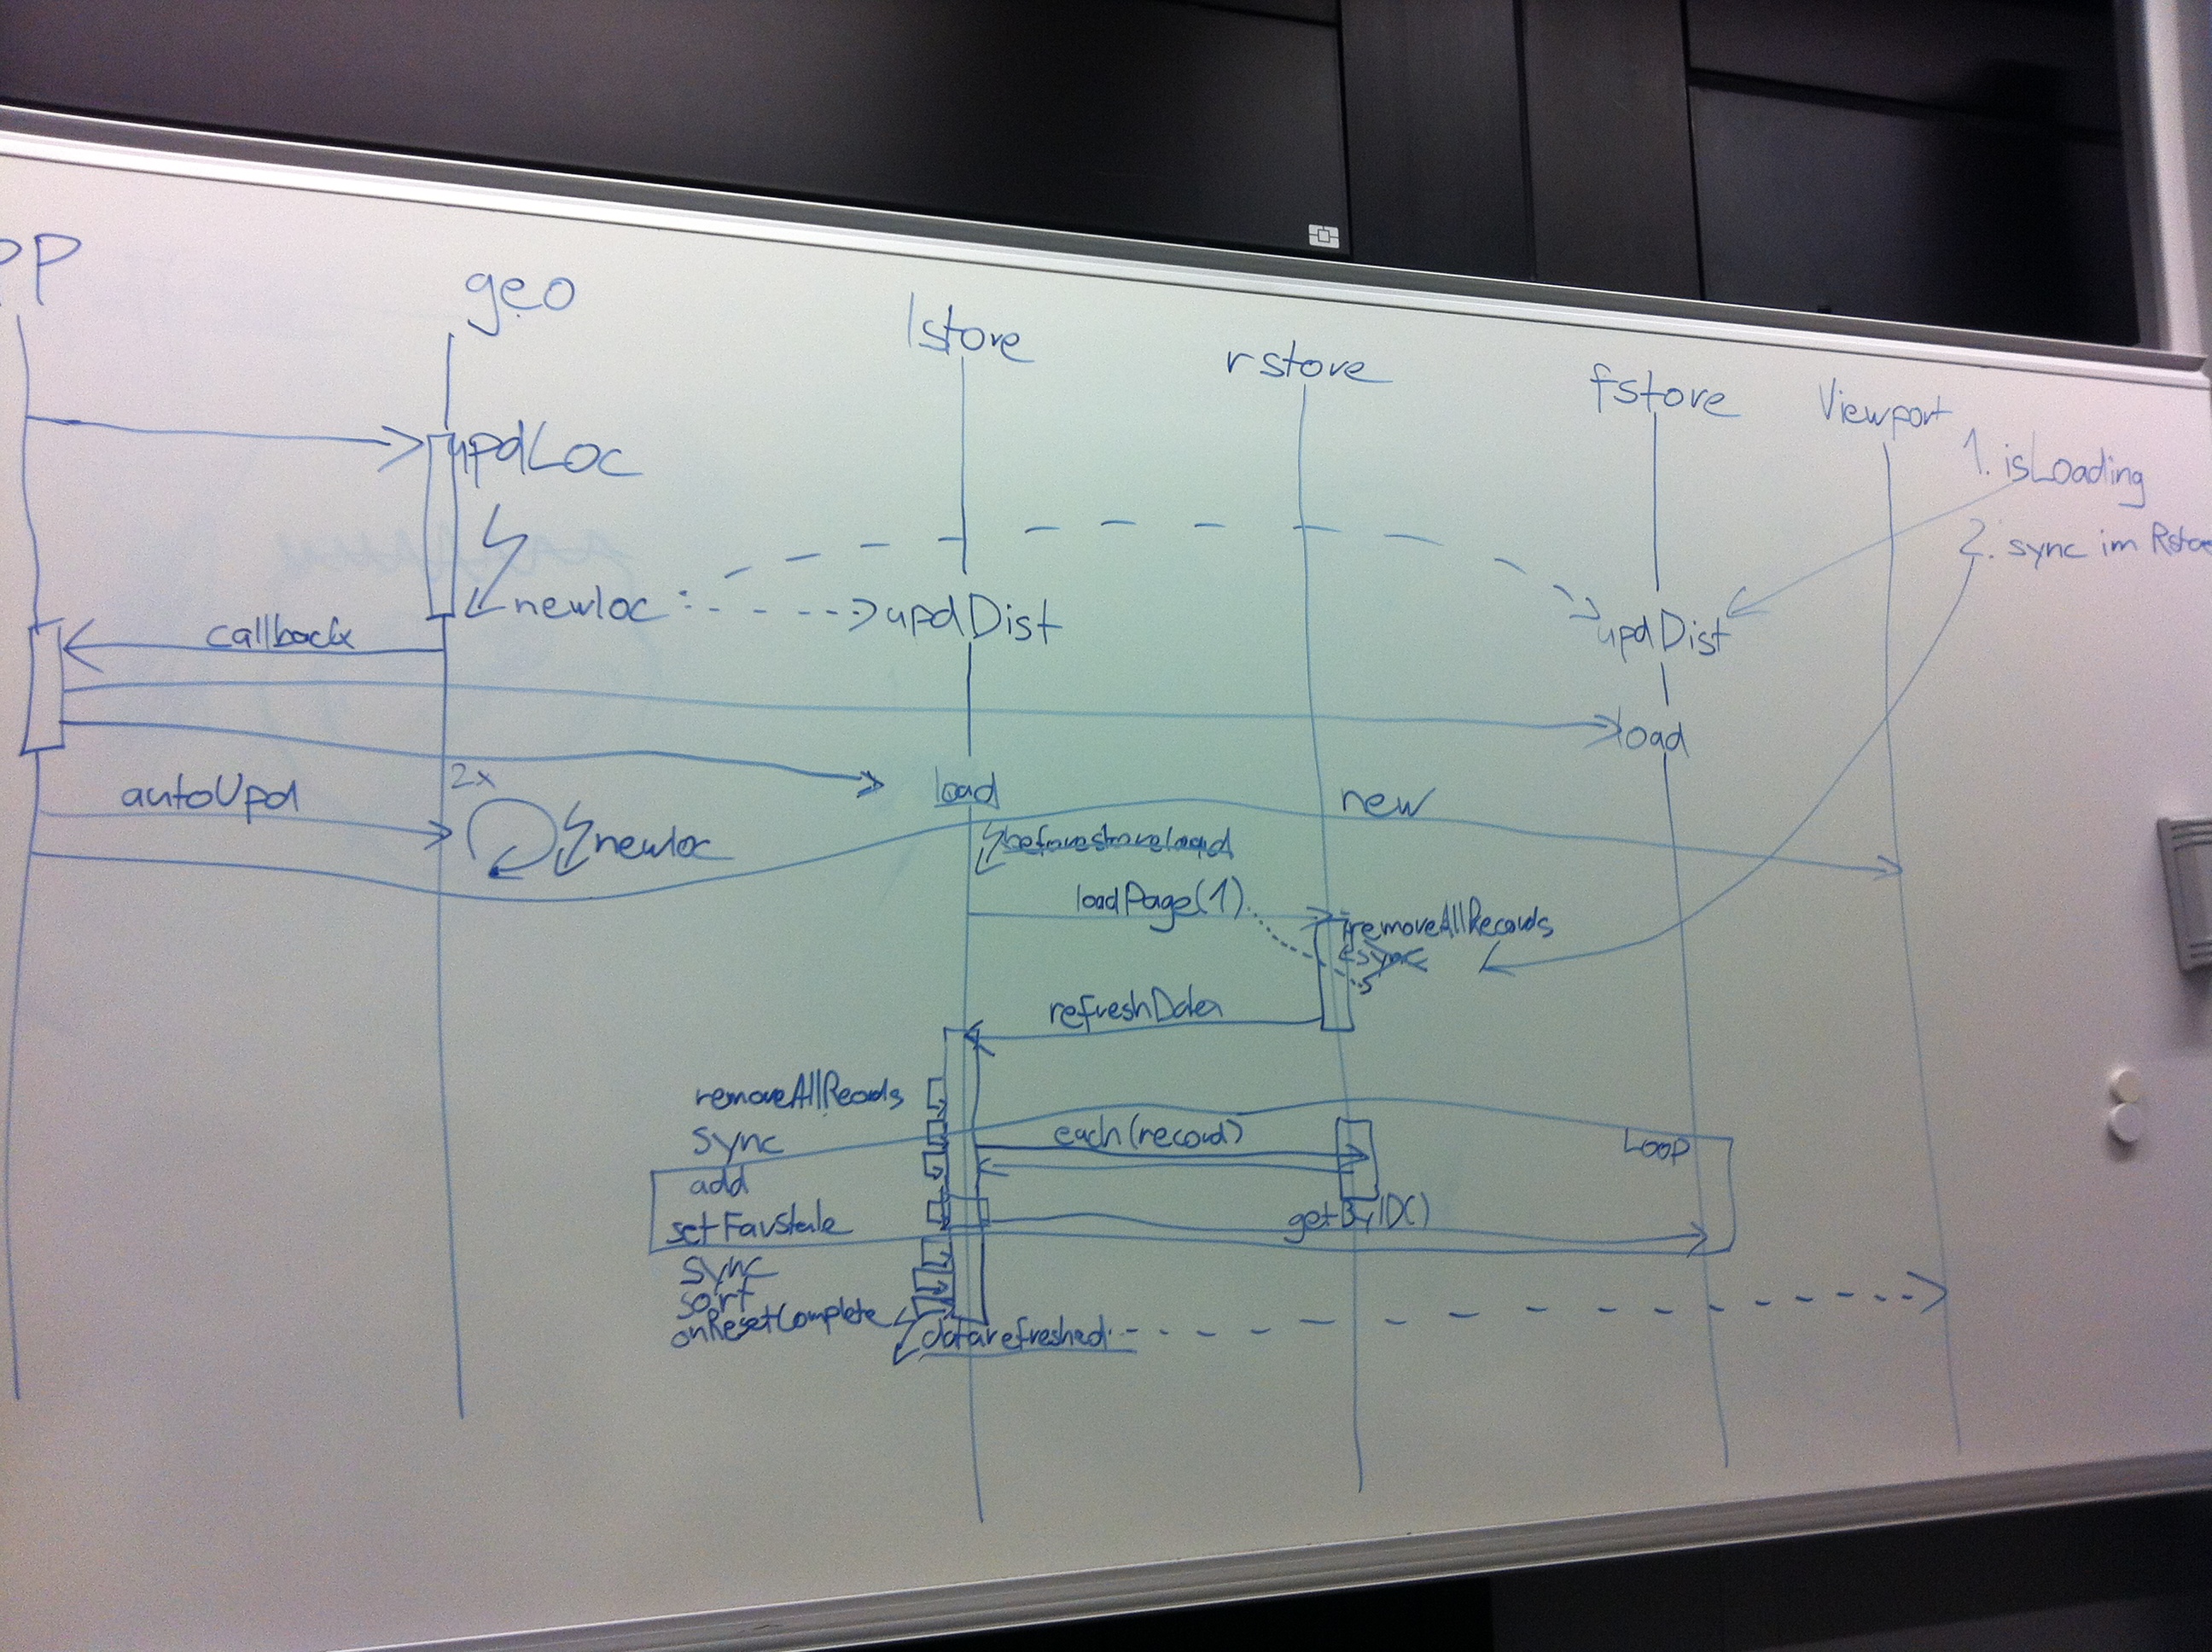 PP
geo
lstore
rstore
fstore
Viewport
1. isLoading
2. sync im Rstore
updLoc
newloc
updDist
updDist
callback
load
load
2x
autoUpd
newloc
new
beforestoreload
loadPage(1)
removeAllRecords
sync
refreshData
removeAllRecords
sync
each(record)
Loop
add
setFavState
getByID()
sync
sort
onResetComplete
datarefreshed